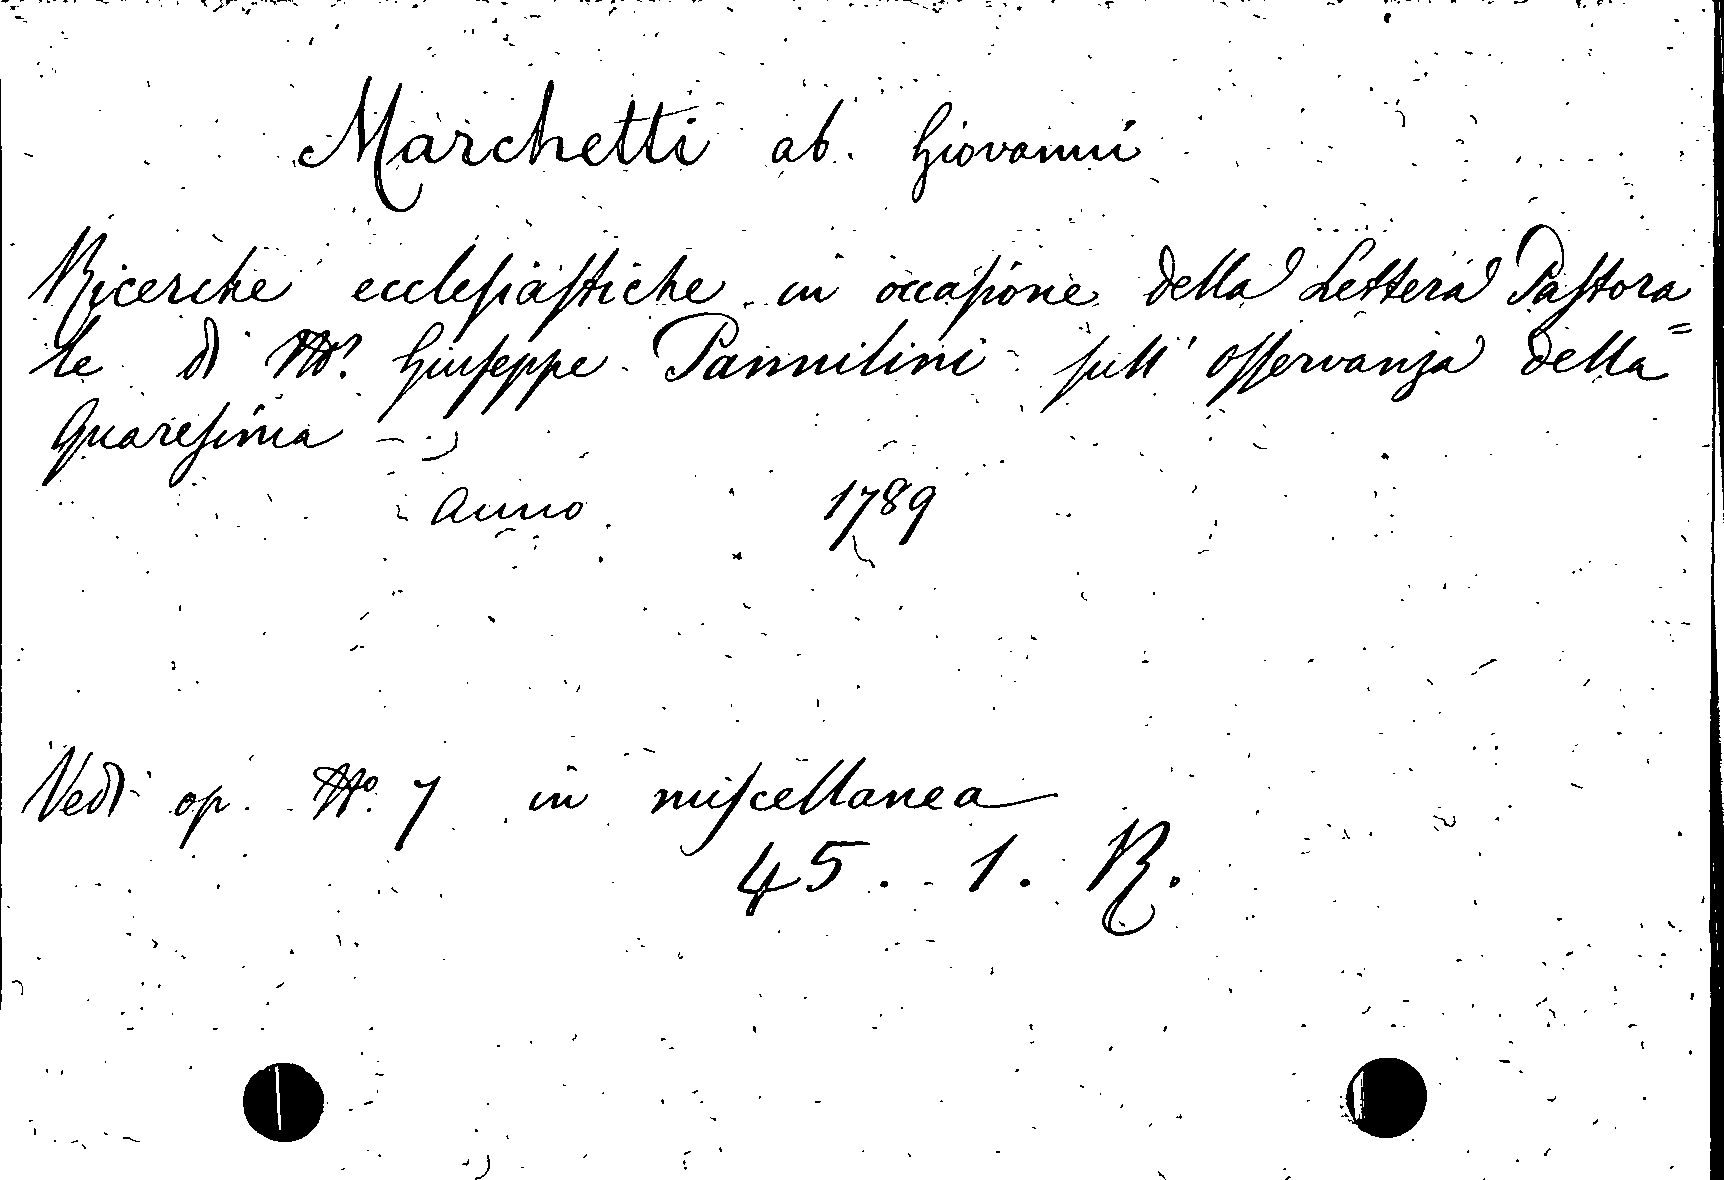 Marchetti ab. Giovanni
Ricerche ecclesiastiche in occasione della Lettera Pastora=
le di Mr. Giuseppe Pannilini sull' osservanza della
Quaresima
Anno 1789
Vedi op. No. 7 in miscellanea
45. 1. R.